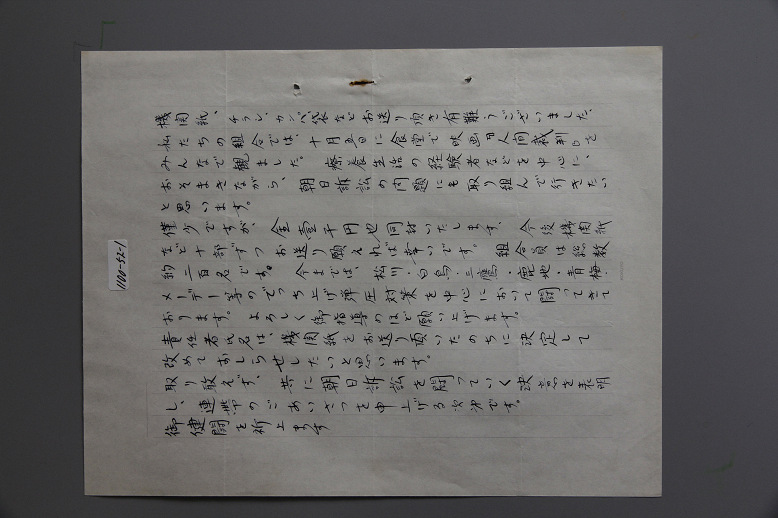 機関紙、チラシ、カンパ袋などお送り頂き有難うございました。
私たちの組合では、十月五日に食堂で映画「人間裁判」を
みんなで観ました。療養生活の経験者などを中心に、
おそまきながら、朝日訴訟の問題にも取り組んで行きたい
と思います。
僅少ですが、金壱千円也同封いたします、今後機関紙
など十部ずつお送り願えれば幸いです。組合員は総数
約二百名です。今までは、松川・白鳥・三鷹・鹿地・青梅・
メーデー等のでっち上げ弾圧対策を中心において闘ってきて
おります。よろしく御指導のほど願い上げます。
責任者氏名は、機関紙をお送り頂いたのちに決定して
改めておしらせしたいと思います。
取り敢えず、共に朝日訴訟を闘っていく決意を表明
し、連帯のごあいさつを申上げる次第です。
御健闘を祈上ます
1100-52-1